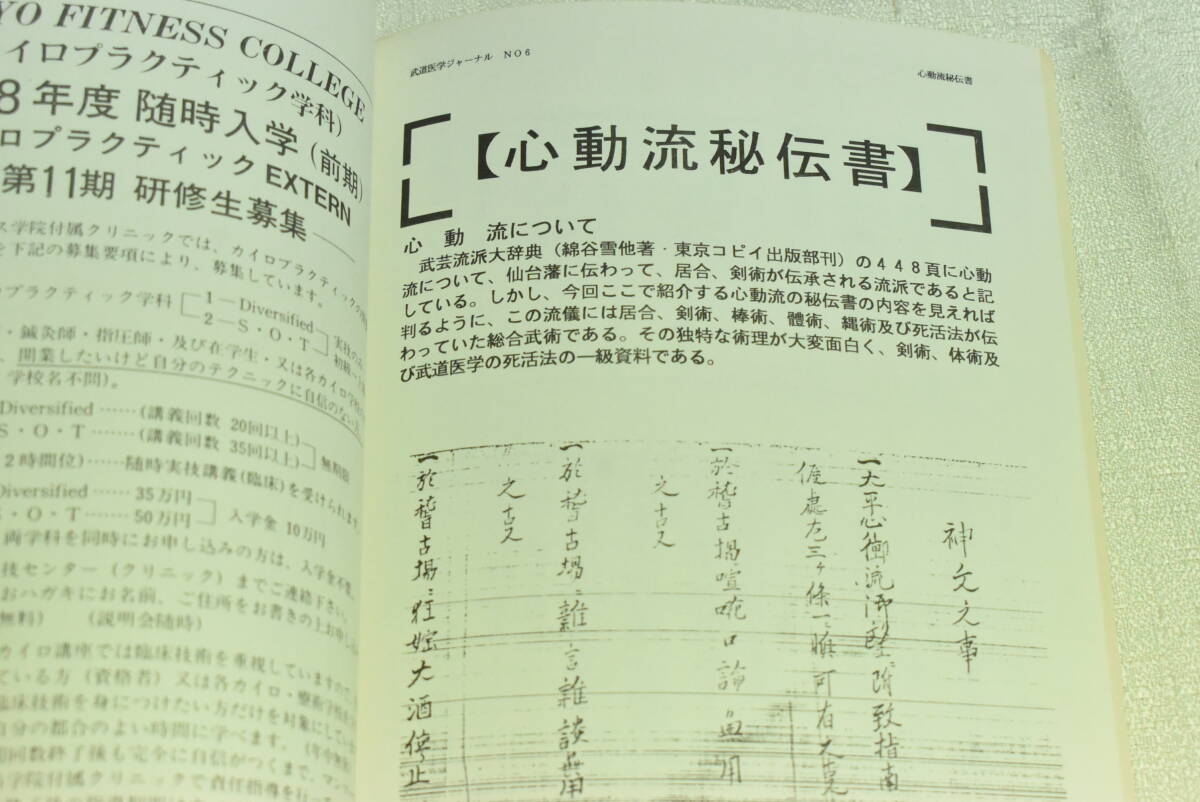 YO FITNESS COLLEGE
イロプラクティック学科)
8年度 随時入学(前期)
ロプラクティック EXTERN
第11期 研修生募集
ス学院付属クリニックでは、カイロプラクティックの
を下記の募集要項により、募集しています。
プラクティック学科
1―Diversified
2―S・O・T
・鍼灸師・指圧師・及び在学生・又は各カイロ学校
、開業したいけど自分のテクニックに自信のない
学校名不問)。
Diversified……(講義回数 20回以上)
S・O・T……(講義回数 35回以上)
無期限
2時間位)……随時実技講義(臨床)を受けられます
Diversified …… 35万円
S・O・T…… 50万円
入学金 10万円
両学科を同時にお申し込みの方は、入学金不要。
技センター(クリニック)までご連絡下さい。
おハガキにお名前、ご住所をお書きの上お申し
無料) (説明会随時)
カイロ講座では臨床技術を重視していますので、
ている方(資格者)又は各カイロ・療術学校
臨床技術を身につけたい方だけを対象にしてい
自分の都合のよい時間に学べます。
回数終了後も完全に自信がつくまで、マン
学院付属クリニックで責任指導を行っ
武道医学ジャーナル NO6
心動流秘伝書
【心動流秘伝書】
心 動 流について
武芸流派大辞典(綿谷雪他著・東京コピイ出版部刊)の448頁に心動
流について、仙台藩に伝わって、居合、剣術が伝承される流派であると記
している。しかし、今回ここで紹介する心動流の秘伝書の内容を見えれば
判るように、この流儀には居合、剣術、棒術、體術、縄術及び死活法が伝
わっていた総合武術である。その独特な術理が大変面白く、剣術、体術及
び武道医学の死活法の一級資料である。
神文之事
一於稽古場喧嘩口論無用
之古又
一於稽古場ニ雑言雑談無用
之古又
一於稽古場ニ狂婬大酒停止